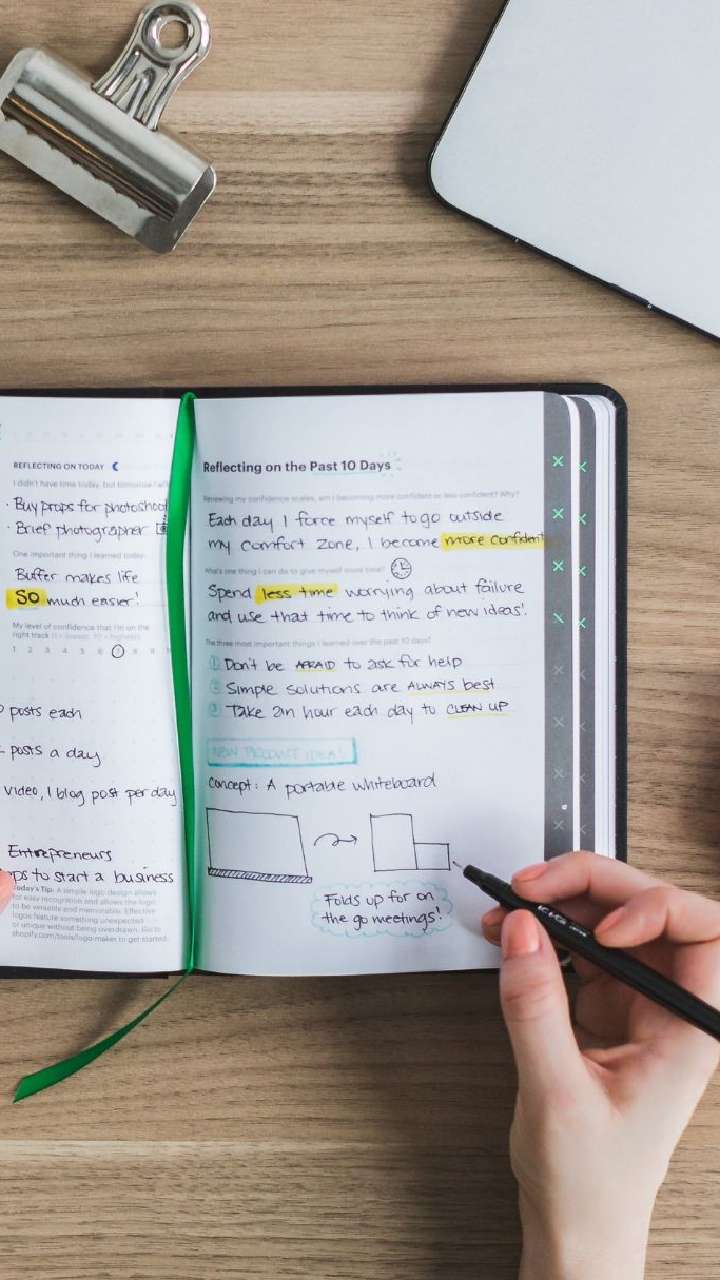 REFLECTING ON TODAY
I didn't have time today, but tomorrow I will
· Buy props for photoshoot
· Brief photographer
One important thing I learned today:
Buffer makes life
SO much easier!
My level of confidence that I'm on the
right track (1 = lowest; 10 = highest)
1 2 3 4 5 6 8 9
posts each
posts a day
video, 1 blog post per day
Entrepreneurs
ps to start a business
Today's Tip: A simple logo design allows
for easy recognition and allows the logo
to be versatile and memorable. Effective
logos feature something unexpected
or unique without being overdrawn. Go to
shopify.com/tools/logo-maker to get started.
Reflecting on the Past 10 Days
Reviewing my confidence scores, am I becoming more confident or less confident? Why?
Each day I force myself to go outside
my comfort zone, I become more confident
What's one thing I can do to give myself more time?
Spend less time worrying about failure
and use that time to think of new ideas!
The three most important things I learned over the past 10 days?
1 Don't be AFRAID to ask for help
2 Simple solutions are ALWAYS best
3 Take an hour each day to CLEAN UP
NEW PRODUCT IDEA!
Concept: A portable whiteboard
Folds up for on
the go meetings!